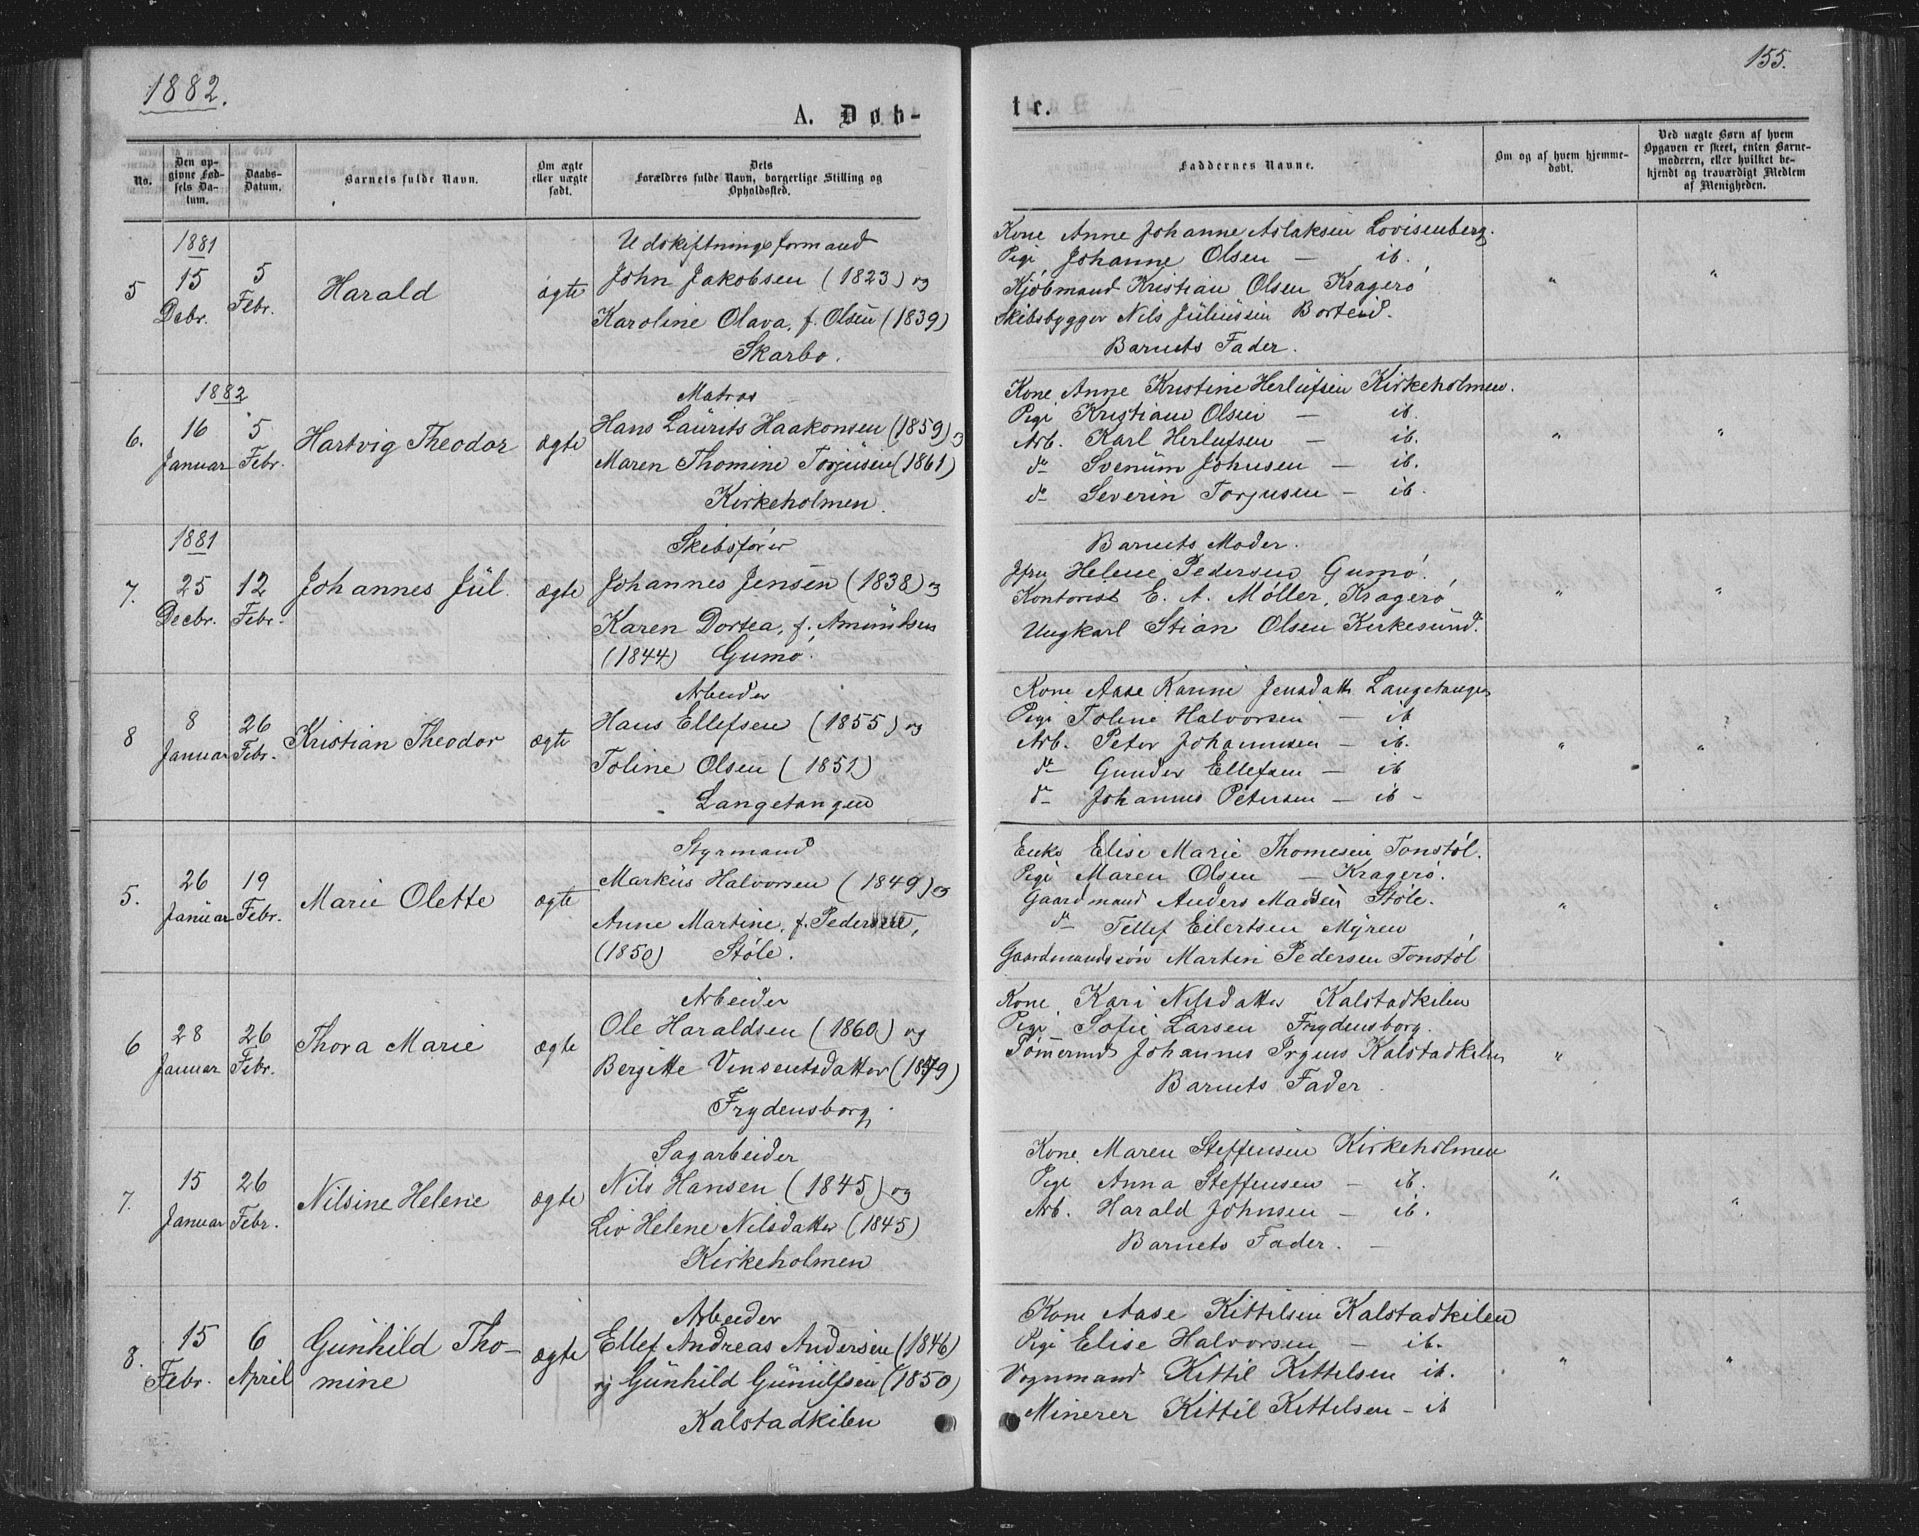 1882.
155.
A. Døb-
tr.
No.
Den opgivne Fødsels Datum.
Daabs-Datum.
Barnets fulde Navn.
Om ægte eller uægte født.
Dets Forældres fulde Navn, borgerlige Stilling og Opholdssted.
Faddernes Navne.
Om og af hvem hjemmedøbt.
Ved uægte Børn af hvem Opgaven er skeet, enten Barnemoderen, eller hvilket bekjendt og troværdigt Medlem af Menigheden.
5
1881
15
Decbr.
5
Febr.
Harald
ægte
Udskiftningsformand
John Jakobsen (1823) og
Karoline Olava, f. Olsen (1839)
Skarbo.
Kone Anne Johanne Aslaksen Lovisenberg.
Pige Johanne Olsen — ib.
Kjøbmand Kristian Olsen Kragerö
Skibsbygger Nils Juliussen Borteid.
Barnets Fader.
" "
6.
1882
16
Januar
5
Febr.
Hartvig Theodor
ægte
Matros
Hans Laurits Haakonsen (1859) og
Maren Thomine Torjusen (1861)
Kirkeholmen.
Kone Anne Kristine Herlufsen Kirkeholmen.
Pige Kristiane Olsen — ib.
Arb. Karl Herlufsen — ib.
do Svenum Johnsen — ib.
do Severin Torjusen — ib.
" "
7.
1881
25
Decbr.
12
Febr.
Johannes Jül.
ægte
Skibsfører
Johannes Jensen (1838) og
Karen Dortea, f. Amundsen
(1844) Gumö.
Barnets Moder.
Jfru Helene Pedersen Gumö.
Kontorist E. A. Møller, Kragerö
Ungkarl Stian Olsen Kirkesund.
" "
8
8
Januar
26
Febr.
Kristian Theodor
ægte
Arbeider
Hans Ellefsen (1855) og
Toline Olsen (1851)
Langetangen
Kone Aase Karine Jensdatt. Langetangen
Pige Toline Halvorsen — ib
Arb. Peter Johannesen — ib.
do Gunder Ellefsen — ib
do Johannes Petersen — ib -
" "
5.
26
Januar
19
Febr.
Marie Olette
ægte
Styrmand
Markus Halvorsen (1849) og
Anne Martine, f. Pedersen,
(1850) Støle.
Enke Elise Marie Thomesen Tonstøl.
Pige Maren Olsen — Kragerö.
Gaardmand Anders Madsen Støle.
do Tellef Eilertsen Myren
Gaardmandssøn Martin Pedersen Tonstøl
" "
6
28
Januar
26
Febr.
Thora Marie
ægte
Arbeider
Ole Haraldsen (1860) og
Bergitte Vinsentsdatter (1849)
Frydensborg.
Kone Kari Nilsdatter Kalstadkilen
Pige Sofie Larsen Frydensborg.
Johannes Kalstadkilen
Barnets Fader.
"
7.
15
Januar
26
Febr.
Nilsine Helene
ægte
Sagarbeider
Nils Hansen (1845) og
Liv Helene Nilsdatter (1845)
Kirkeholmen
Kone Maren Steffensen Kirkeholmen
Pige Anna Steffensen — ib.
Arb. Harald Johnsen — ib.
Barnets Fader. —
" "
8.
15
Febr.
6
April
Gunhild Tho-
mine
ægte
Arbeider
Ellef Andreas Andersen (1846)
og Gunhild Gunulfsen (1850)
Kalstadkilen
Kone Aase Kittilsen Kalstadkilen
Pige Elise Halvorsen — ib.
Vognmand Kittil Kittelsen ib.
Minerer Kittil Kittelsen - ib
" "